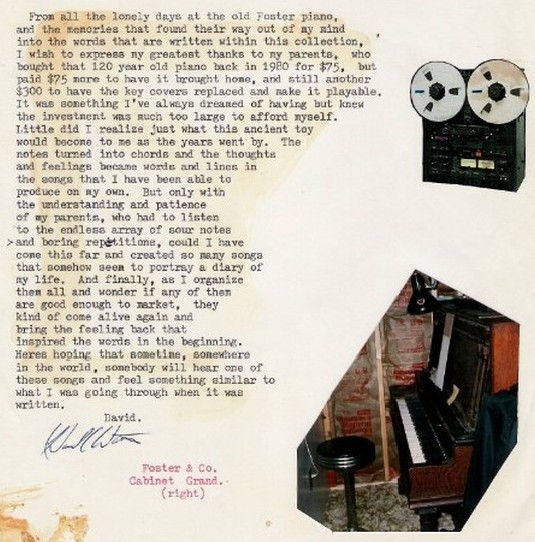 From all the lonely days at the old Foster piano,
and the memories that found their way out of my mind
into the words that are written within this collection,
I wish to express my greatest thanks to my parents, who
bought that 120 year old piano back in 1980 for $75, but
paid $75 more to have it brought home, and still another
$300 to have the key covers replaced and make it playable.
It was something I've always dreamed of having but knew
the investment was much too large to afford myself.
Little did I realize just what this ancient toy
would become to me as the years went by. The
notes turned into chords and the thoughts
and feelings became words and lines in
the songs that I have been able to
produce on my own. But only with
the understanding and patience
of my parents, who had to listen
to the endless array of sour notes
>and boring repetitions, could I have
come this far and created so many songs
that somehow seem to portray a diary of
my life. And finally, as I organize
them all and wonder if any of them
are good enough to market, they
kind of come alive again and
bring the feeling back that
inspired the words in the beginning.
Heres hoping that sometime, somewhere
in the world, somebody will hear one of
these songs and feel something similar to
what I was going through when it was
written.
David.
Foster & Co.
Cabinet Grand.
(right)